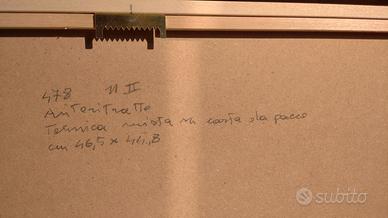 478 11 II
Autoritratto
Tecnica mista su carta da pacco
cm 46,5 x 44,8
subito